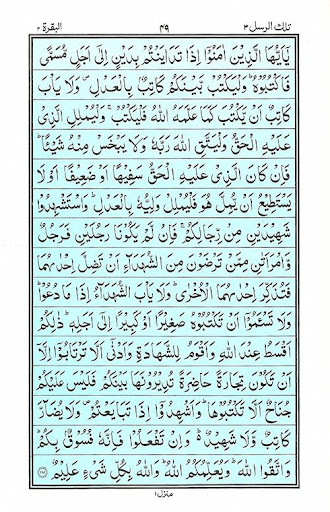 تلك الرسل ٣ ٤٩ البقرة ٢
يٰۤاَيُّهَا الَّذِيْنَ اٰمَنُوْۤا اِذَا تَدَايَنْتُمْ بِدَيْنٍ اِلٰۤى اَجَلٍ مُّسَمًّى
فَاكْتُبُوْهُ ؕ وَلْيَكْتُبْ بَّيْنَكُمْ كَاتِبٌۢ بِالْعَدْلِ ۪ وَلَا يَاْبَ
كَاتِبٌ اَنْ يَّكْتُبَ كَمَا عَلَّمَهُ اللّٰهُ فَلْيَكْتُبْ ۚ وَلْيُمْلِلِ الَّذِيْ
عَلَيْهِ الْحَقُّ وَلْيَتَّقِ اللّٰهَ رَبَّهٗ وَلَا يَبْخَسْ مِنْهُ شَيْـًٔا ؕ
فَاِنْ كَانَ الَّذِيْ عَلَيْهِ الْحَقُّ سَفِيْهًا اَوْ ضَعِيْفًا اَوْ لَا
يَسْتَطِيْعُ اَنْ يُّمِلَّ هُوَ فَلْيُمْلِلْ وَلِيُّهٗ بِالْعَدْلِ ؕ وَاسْتَشْهِدُوْا
شَهِيْدَيْنِ مِنْ رِّجَالِكُمْ ۚ فَاِنْ لَّمْ يَكُوْنَا رَجُلَيْنِ فَرَجُلٌ
وَّامْرَاَتٰنِ مِمَّنْ تَرْضَوْنَ مِنَ الشُّهَدَآءِ اَنْ تَضِلَّ اِحْدٰىهُمَا
فَتُذَكِّرَ اِحْدٰىهُمَا الْاُخْرٰى ؕ وَلَا يَاْبَ الشُّهَدَآءُ اِذَا مَا دُعُوْا ؕ
وَلَا تَسْـَٔمُوْۤا اَنْ تَكْتُبُوْهُ صَغِيْرًا اَوْ كَبِيْرًا اِلٰۤى اَجَلِهٖ ؕ ذٰلِكُمْ
اَقْسَطُ عِنْدَ اللّٰهِ وَاَقْوَمُ لِلشَّهَادَةِ وَاَدْنٰۤى اَلَّا تَرْتَابُوْۤا اِلَّاۤ
اَنْ تَكُوْنَ تِجَارَةً حَاضِرَةً تُدِيْرُوْنَهَا بَيْنَكُمْ فَلَيْسَ عَلَيْكُمْ
جُنَاحٌ اَلَّا تَكْتُبُوْهَا ؕ وَاَشْهِدُوْۤا اِذَا تَبَايَعْتُمْ ۪ وَلَا يُضَآرَّ
كَاتِبٌ وَّلَا شَهِيْدٌ ؕ وَاِنْ تَفْعَلُوْا فَاِنَّهٗ فُسُوْقٌۢ بِكُمْ ؕ
وَاتَّقُوا اللّٰهَ ؕ وَيُعَلِّمُكُمُ اللّٰهُ ؕ وَاللّٰهُ بِكُلِّ شَيْءٍ عَلِيْمٌ ۝۲۸۲
منزل ١